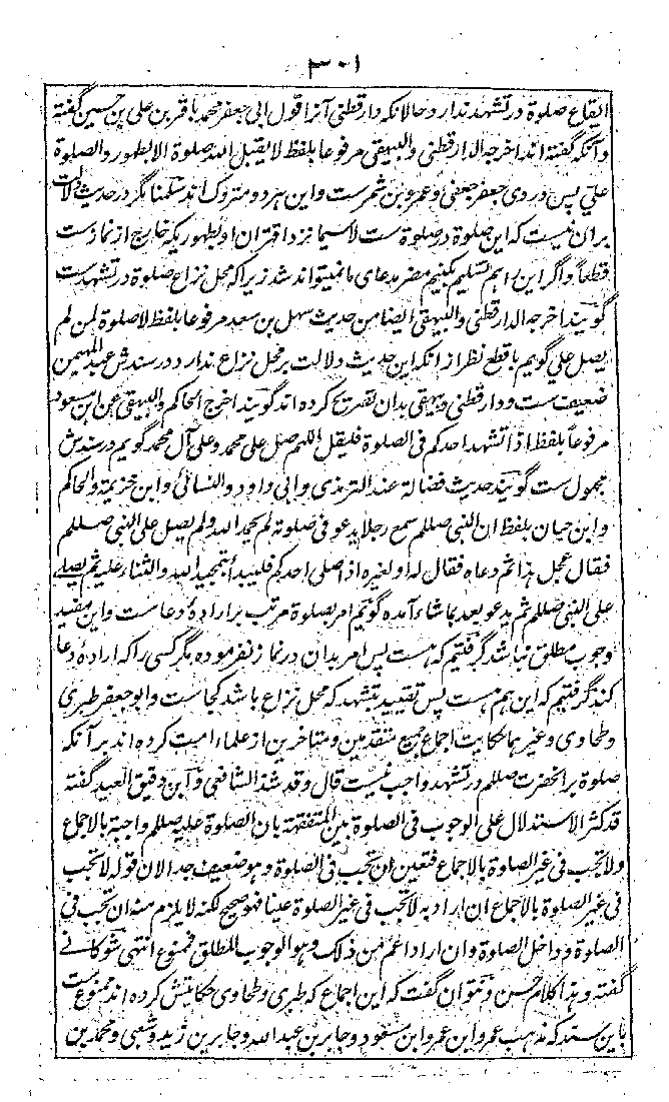 ۳۰۱
ایقاع صلوة در تشهد ندارد حالانکه دارقطنی آنرا قول ابی جعفر محمد باقر بن علی بن حسین گفته
و آنکه گفته اند اخرجه الدارقطنی والبیهقی مرفوعا بلفظ لا یقبل الله صلوة الا بطهور والصلوة
علی پس در وی جعفر جعفی و عمرو بن شمرست و این هر دو متروک اند سلمنا مگر در حدیث دلالت
بران نیست که این صلوة در صلوة ست لاسیما نزد اقتران او بطهوریکه خارج از نمازست
قطعاً و اگر این را هم تسلیم بکنیم مضر مدعای ما نمیتواند شد زیراکه محل نزاع صلوة در تشهدست
گویند اخرجه الدارقطنی والبیهقی ایضا من حدیث سهل بن سعد مرفوعا بلفظ لا صلوة لمن لم
یصل علی گویم با قطع نظر از آنکه این حدیث دلالت بر محل نزاع ندارد در سندش عبد المهیمن
ضعیف ست و دارقطنی و بیهقی بدان تصریح کرده اند گویند اخرج الحاکم والبیهقی عن ابن مسعود
مرفوعاً بلفظ اذا تشهد احدکم فی الصلوة فلیقل اللهم صل علی محمد وعلی آل محمد گویم در سندش
مجهول ست گویند حدیث فضاله عند الترمذی وابی داود والنسائی وابن خزیمة والحاکم
وابن حبان بلفظ ان النبی صللم سمع رجلا یدعو فی صلوته لم یحمد الله ولم یصل علی النبی صللم
فقال عجل هذا ثم دعاه فقال له او لغیره اذا صلی احدکم فلیبدأ بتمجید الله والثناء علیه ثم یصلی
علی النبی صللم ثم یدعو بعد بما شاء آمده گویم امر بصلوة مرتب بر ارادهٔ دعاست و این مفید
وجوب مطلق نباشد گرفتیم که هست پس امر بدان در نماز نفرموده مگر کسی را که ارادهٔ دعا
کند گرفتیم که این هم هست پس تقیید بتشهد که محل نزاع باشد کجاست و ابو جعفر طبری
و طحاوی و غیرهما حکایت اجماع جمیع متقدمین و متاخرین از علماء امت کرده اند بر آنکه
صلوة بر آنحضرت صللم در تشهد واجب نیست قال وقد شذ الشافعی و ابن دقیق العید گفته
قد کثر الاستدلال علی الوجوب فی الصلوة بین المتفقهة بان الصلوة علیه صللم واجبة بالاجماع
ولا تجب فی غیر الصلوة بالاجماع فتعین ان تجب فی الصلوة وهو ضعیف جدا لان قوله لا تجب
فی غیر الصلوة بالاجماع ان اراد به لا تجب فی غیر الصلوة عینا فهو صحیح لکنه لا یلزم منه ان تجب فی
الصلوة و داخل الصلوة وان اراد اعم من ذلک وهو الوجوب المطلق فممنوع انتهی شوکانے
گفته وهذا کلام حسن و نتوان گفت که این اجماع که طبری و طحاوی حکایتش کرده اند ممنوع ست
باین سند که مذهب عمر و ابن عمر و ابن مسعود و جابر بن عبد الله و جابر بن زید و شعبی و محمد بن